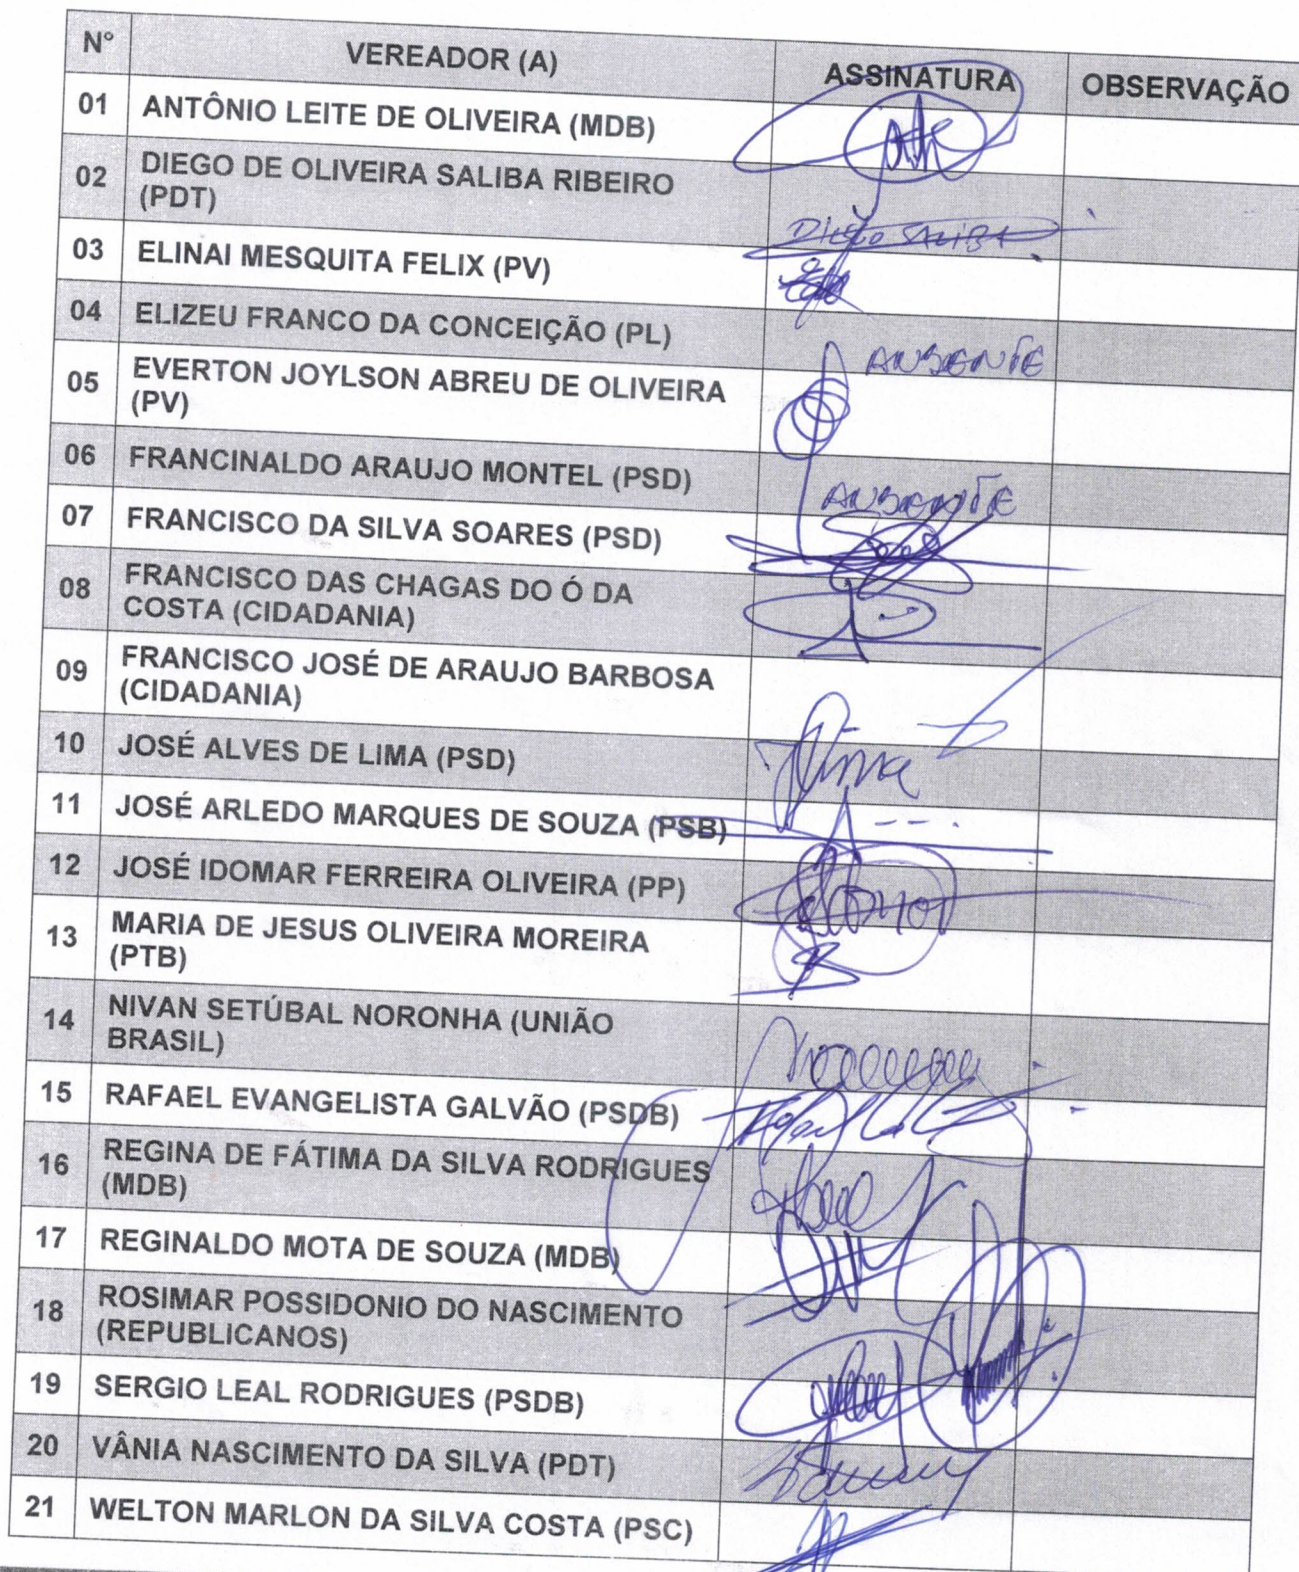 N° VEREADOR (A) ASSINATURA OBSERVAÇÃO
01 ANTÔNIO LEITE DE OLIVEIRA (MDB)
02 DIEGO DE OLIVEIRA SALIBA RIBEIRO
(PDT)
DIEGO SALIBA
03 ELINAI MESQUITA FELIX (PV)
04 ELIZEU FRANCO DA CONCEIÇÃO (PL) AUSENTE
05 EVERTON JOYLSON ABREU DE OLIVEIRA
(PV)
06 FRANCINALDO ARAUJO MONTEL (PSD) AUSENTE
07 FRANCISCO DA SILVA SOARES (PSD)
08 FRANCISCO DAS CHAGAS DO Ó DA
COSTA (CIDADANIA)
09 FRANCISCO JOSÉ DE ARAUJO BARBOSA
(CIDADANIA)
10 JOSÉ ALVES DE LIMA (PSD)
11 JOSÉ ARLEDO MARQUES DE SOUZA (PSB)
12 JOSÉ IDOMAR FERREIRA OLIVEIRA (PP)
13 MARIA DE JESUS OLIVEIRA MOREIRA
(PTB)
14 NIVAN SETÚBAL NORONHA (UNIÃO
BRASIL)
15 RAFAEL EVANGELISTA GALVÃO (PSDB)
16 REGINA DE FÁTIMA DA SILVA RODRIGUES
(MDB)
17 REGINALDO MOTA DE SOUZA (MDB)
18 ROSIMAR POSSIDONIO DO NASCIMENTO
(REPUBLICANOS)
19 SERGIO LEAL RODRIGUES (PSDB)
20 VÂNIA NASCIMENTO DA SILVA (PDT)
21 WELTON MARLON DA SILVA COSTA (PSC)